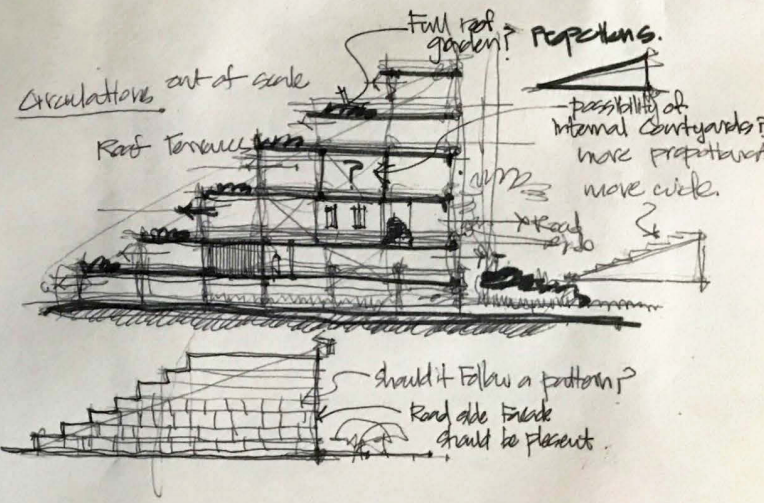 Full roof
garden?
Propotions.
Circulations out of scale
possibility of
internal courtyards?
more propotional
more wide.
Roof Terraces
?
Road
?
should it Follow a pattern?
Road side Facade
should be pleasent.